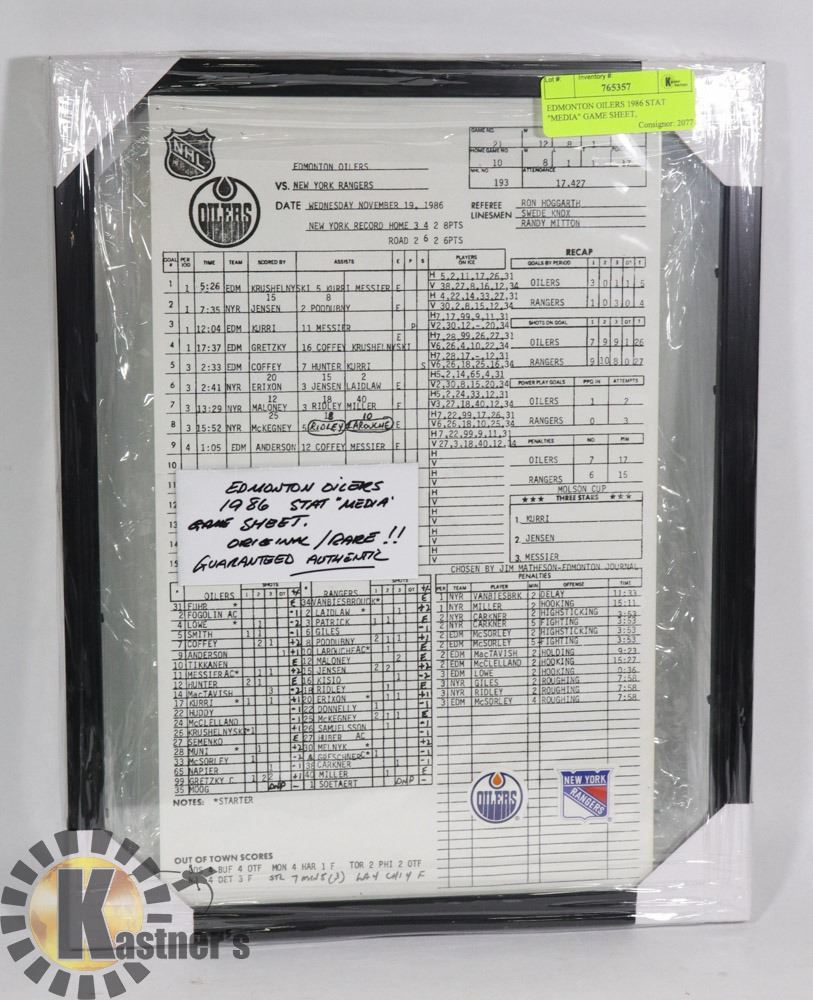 Lot #: Inventory #:
765357
EDMONTON OILERS 1986 STAT
"MEDIA" GAME SHEET,
Consignor: 2077
NHL
OILERS
EDMONTON OILERS
VS. NEW YORK RANGERS
DATE WEDNESDAY NOVEMBER 19, 1986
NEW YORK RECORD HOME 3 4 2 8PTS
ROAD 2 6 2 6PTS
GAME NO.
21 12 8 1
HOME GAME NO.
10 8 1 1 17
NHL NO. ATTENDANCE
193 17,427
REFEREE RON HOGGARTH
LINESMEN SWEDE KNOX
RANDY MITTON
GOAL # PERIOD TIME TEAM SCORED BY ASSISTS E P S PLAYERS ON ICE
1 1 5:26 EDM KRUSHELNYSKI 5 KURRI MESSIER E H 5,2,11,17,26,31
V 38,27,8,16,12,34
15 8
2 1 7:35 NYR JENSEN 2 PODDUBNY E H 4,22,14,33,27,31
V 30,2,8,15,12,34
3 1 12:04 EDM KURRI 11 MESSIER P H7,17,99,9,11,31
V2,30,12,-,20,34
4 1 17:37 EDM GRETZKY 16 COFFEY KRUSHELNYSKI E H7,28,99,26,27,31
V6,26,4,10,22,34
5 3 2:33 EDM COFFEY 7 HUNTER KURRI S H7,28,17,-,12,31
V6,26,18,25,16,34
20 15 2
6 3 2:41 NYR ERIXON 3 JENSEN LAIDLAW E H5,2,14,65,4,31
V2,30,8,15,20,34
12 18 40
7 3 13:29 NYR MALONEY 3 RIDLEY MILLER E H5,2,24,33,12,31
V3,27,18,40,12,34
25 18 10
8 3 15:52 NYR McKEGNEY 5 RIDLEY LAROUCHE E H7,22,99,17,26,31
V6,26,18,10,25,34
9 4 1:05 EDM ANDERSON 12 COFFEY MESSIER E H7,22,99,9,11,31
V 27,3,18,40,12,34
10
RECAP
GOALS BY PERIOD 1 2 3 OT T
OILERS 3 0 1 1 5
RANGERS 1 0 3 0 4
SHOTS ON GOAL 1 2 3 OT T
OILERS 7 9 9 1 26
RANGERS 9 10 8 0 27
POWER PLAY GOALS PPG IN ATTEMPTS
OILERS 1 2
RANGERS 0 3
PENALTIES NO PIM
OILERS 7 17
RANGERS 6 15
MOLSON CUP
★★★ THREE STARS ★★★
1. KURRI
2. JENSEN
3. MESSIER
CHOSEN BY JIM MATHESON-EDMONTON JOURNAL
EDMONTON OILERS
1986 STAT "MEDIA"
GAME SHEET.
ORIGINAL/RARE!!
GUARANTEED AUTHENTIC
OILERS SHOTS 1 2 3 OT +/-
31 FUHR *
2 FOGOLIN AC
4 LOWE *
5 SMITH
7 COFFEY
9 ANDERSON
10 TIKKANEN
11 MESSIER AC*
12 HUNTER
14 MacTAVISH
17 KURRI *
22 HUDDY
24 McCLELLAND
26 KRUSHELNYSKI*
27 SEMENKO
28 MUNI *
33 McSORLEY
65 NAPIER
99 GRETZKY C
35 MOOG DNP
RANGERS SHOTS 1 2 3 OT +/-
34 VANBIESBROUCK*
2 LAIDLAW *
3 PATRICK
6 GILES
8 PODDUBNY
10 LAROUCHE AC*
12 MALONEY
15 JENSEN
16 KISIO
18 RIDLEY
20 ERIXON *
22 DONNELLY
25 McKEGNEY
26 SAMUELSSON
27 HUBER AC
30 MELNYK *
4 GRESCHNER C*
38 CARKNER
40 MILLER
1 SOETAERT DNP
PENALTIES
PER TEAM PLAYER MIN OFFENSE TIME
1 NYR VANBIESBRK 2 DELAY 11:33
1 NYR MILLER 2 HOOKING 15:11
2 NYR CARKNER 2 HIGHSTICKING 3:53
2 NYR CARKNER 5 FIGHTING 3:53
2 EDM McSORLEY 2 HIGHSTICKING 3:53
2 EDM McSORLEY 5 FIGHTING 3:53
2 EDM MacTAVISH 2 HOLDING 9:23
2 EDM McCLELLAND 2 HOOKING 15:27
3 EDM LOWE 2 HOOKING 0:36
3 NYR GILES 2 ROUGHING 7:58
3 NYR RIDLEY 2 ROUGHING 7:58
3 EDM McSORLEY 4 ROUGHING 7:58
NOTES: *STARTER
OILERS
NEW YORK
RANGERS
OUT OF TOWN SCORES
BUF 4 OTF MON 4 HAR 1 F TOR 2 PHI 2 OTF
4 DET 3 F STL 7 MINS (3) LA 4 CHI 4 F
K
Kastner's